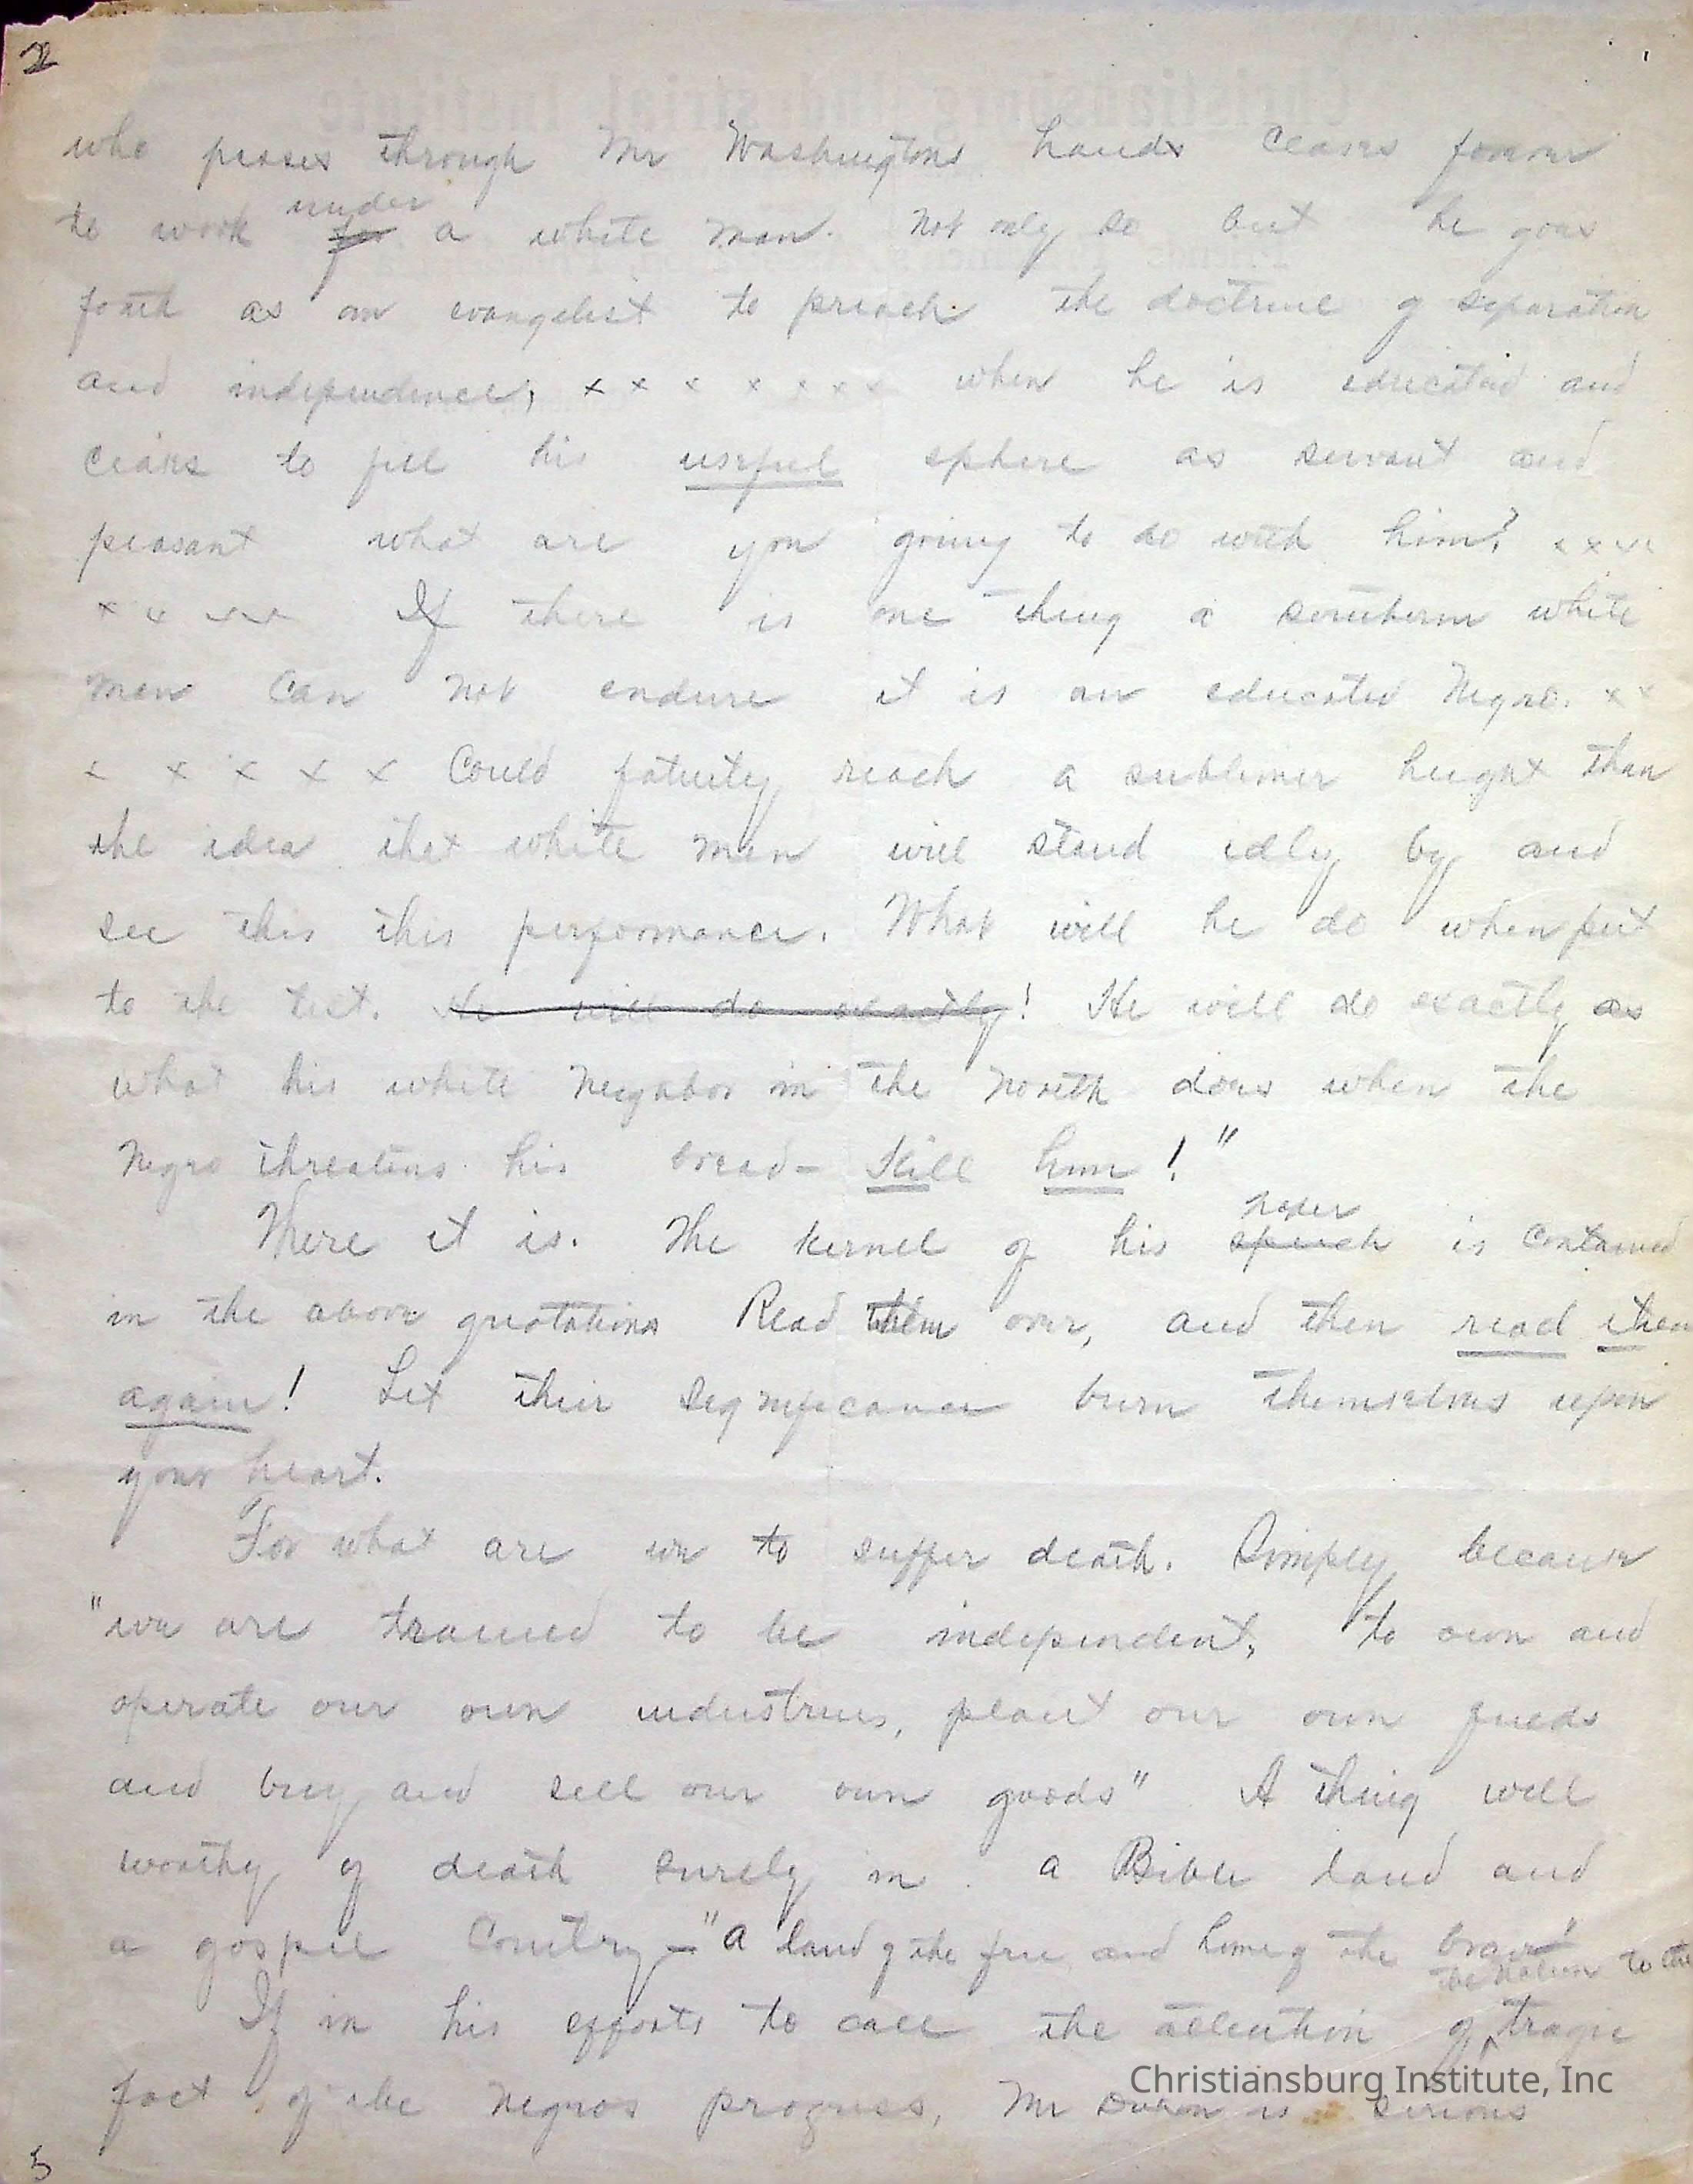 2
who passes through Mr Washingtons hands ceases forever
to work for under a white man. Not only so but he goes
forth as an evangelist to preach the doctrine of separation
and independence, x x x x x x x x when he is educated and
ceases to fill his useful sphere as servant and
peasant what are you going to do with him? x x x x
x x x x If there is one thing a southern white
man can not endure it is an educated Negro. x x
x x x x x Could fatuity reach a sublimer height than
the idea that white men will stand idly by and
see this this performance. What will he do when put
to the test. He will do exactly! He will do exactly as
what his white neighbor in the north does when the
Negro threatens his bread - Kill him!"
There it is. The kernel of his speech paper is contained
in the above quotations Read them over, and then read them
again! Let their significance burn themselves upon
your heart.
For what are we to suffer death. Simply because
"we are trained to be independent, to own and
operate our own industries, plant our own fields
and buy and sell our own goods" A thing well
worthy of death surely in a Bible land and
a gospel Country - "a land of the free and home of the brave"
If in his efforts to call the attention of the nation to the tragic
fact of the Negros progress, Mr Dixon is serious
5
Christiansburg Institute, Inc